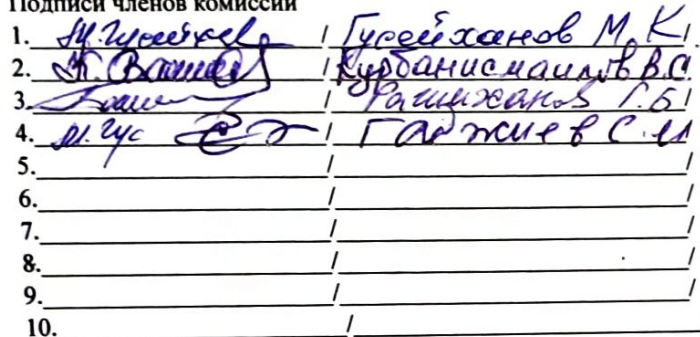 Подписи членов комиссии
1. / Гусейханов М.К/
2. / Курбанисмаилов В.С/
3. / Рагимханов Г.Б/
4. / Гаджиев С.М
5. / /
6. / /
7. / /
8. / /
9. / /
10. /